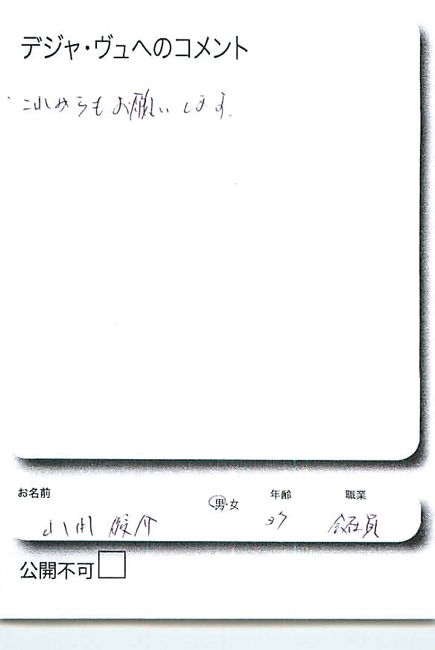 デジャ・ヴュへのコメント
これからもお願いします。
お名前 男・女 年齢 職業
介 会社員
公開不可